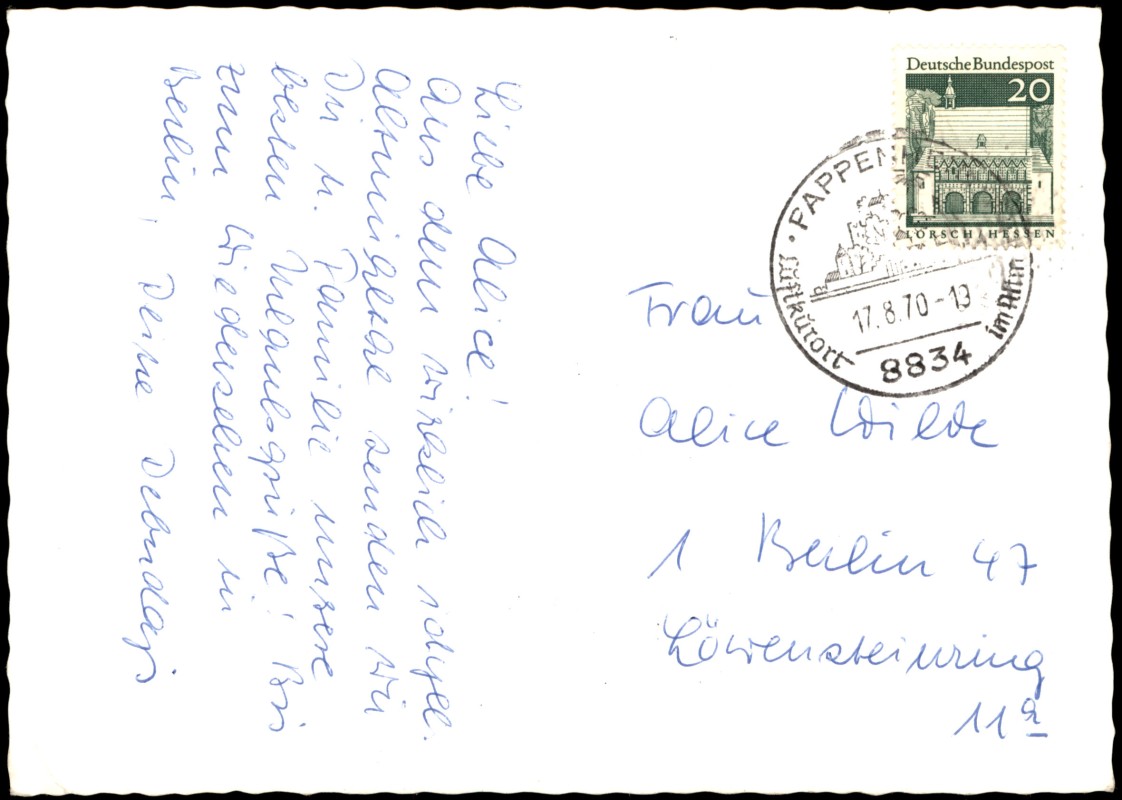 Liebe Alice!
Aus dem wirklich idyll.
Altmühltal senden wir
Dir u. Familie unsere
besten Urlaubsgrüße! Bis
zum Wiedersehen in
Berlin, Deine
Deutsche Bundespost
20
LORSCH/HESSEN
PAPPENH
Luftkurort
17.8.70-19
im Altm
8834
Frau
Alice Wilde
1 Berlin 47
Löwensteinring
11a